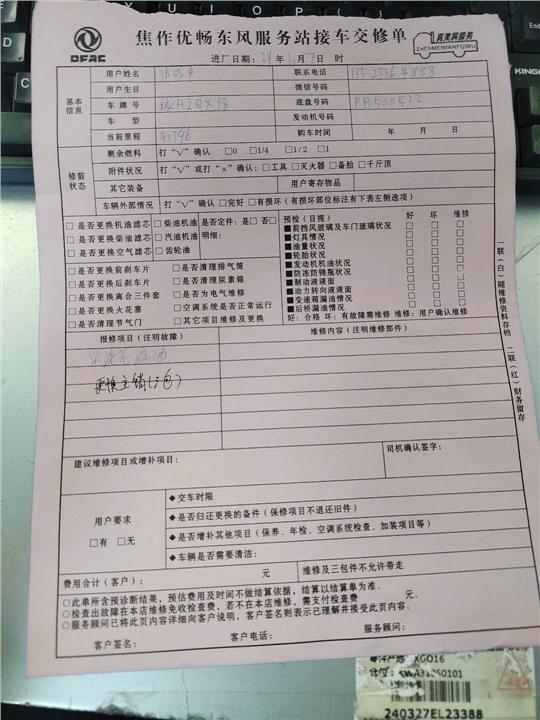 焦作优畅东风服务站接车交修单
DFAC
真美满服务
ZHENMEIMANFUWU
进厂日期：24年1月7日 时
基本信息
用户姓名
联系电话
用户生日
微信号码
车牌号
底盘号码 PB500522
车型
发动机号码
当前里程 40396
购车时间 年 月 日
修前状态
剩余燃料 打“√”确认 □0 □1/4 □1/2 □1
附件状况 打“√”或打“×”确认：□工具 □灭火器 □备胎 □千斤顶
其它装备
用户寄存物品
车辆外部情况 打“√”确认 □完好 □有损坏（有损坏部位标注有下表左侧选项）
□是否更换机油滤芯 □柴油机油 是否定件：是□ 否□
□是否更换柴油滤芯 □汽油机油 明细：
□是否更换空气滤芯 □齿轮油
□是否更换前刹车片 □是否清理排气筒
□是否更换后刹车片 □是否清理尿素箱
□是否更换离合三件套 □是否为电气维修
□是否更换火花塞 □空调系统是否正常运行
□是否清理节气门 □其它项目维修及更换
预检（目视） 好 坏 维修
■前挡风玻璃及车门玻璃状况 □ □ □
■灯具情况 □ □ □
■油量状况 □ □ □
■轮胎状况 □ □ □
■发动机机油状况 □ □ □
■防冻防锈瓶状况 □ □ □
■制动液液面 □ □ □
■动力转向液液面 □ □ □
■变速箱漏油情况 □ □ □
■后桥漏油情况 □ □ □
好：合格 坏：有故障需维修 维修：用户确认维修
报修项目（注明故障）
维修内容（注明维修部件）
更换主销(2包)
建议维修项目或增补项目：
司机确认签字：
用户要求
□有 □无
◆交车时限
◆是否归还更换的备件（保修项目不退还旧件）
◆是否增补其他项目（保养、年检、空调系统检查、加装项目等）
◆车辆是否需要清洁：
费用合计（客户）： 元
维修及三包件不允许带走
○此单所含预诊断结果，预估费用及时间不做结算依据，结算以结算单为准。
○检查出故障在本店维修免收检查费，若不在本店维修，需支付检查费 元。
○服务顾问已将此页内容详细向客户说明，客户签名则表示已理解并接受此页内容。
客户签名： 客户电话： 服务顾问：
一联（白）随维修资料存档 二联（红）财务留存
XGO16
240327EL23388